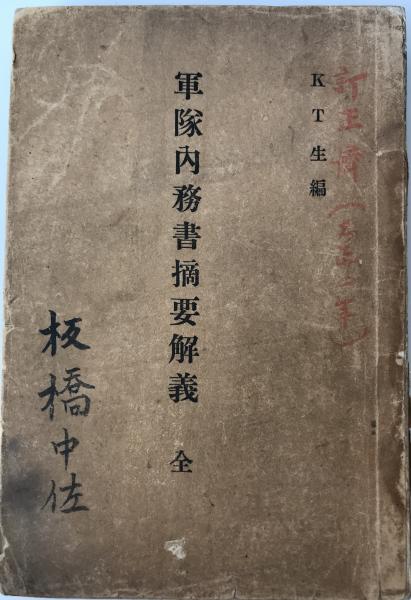 訂正済
KT生編
軍隊内務書摘要解義 全
板橋中佐